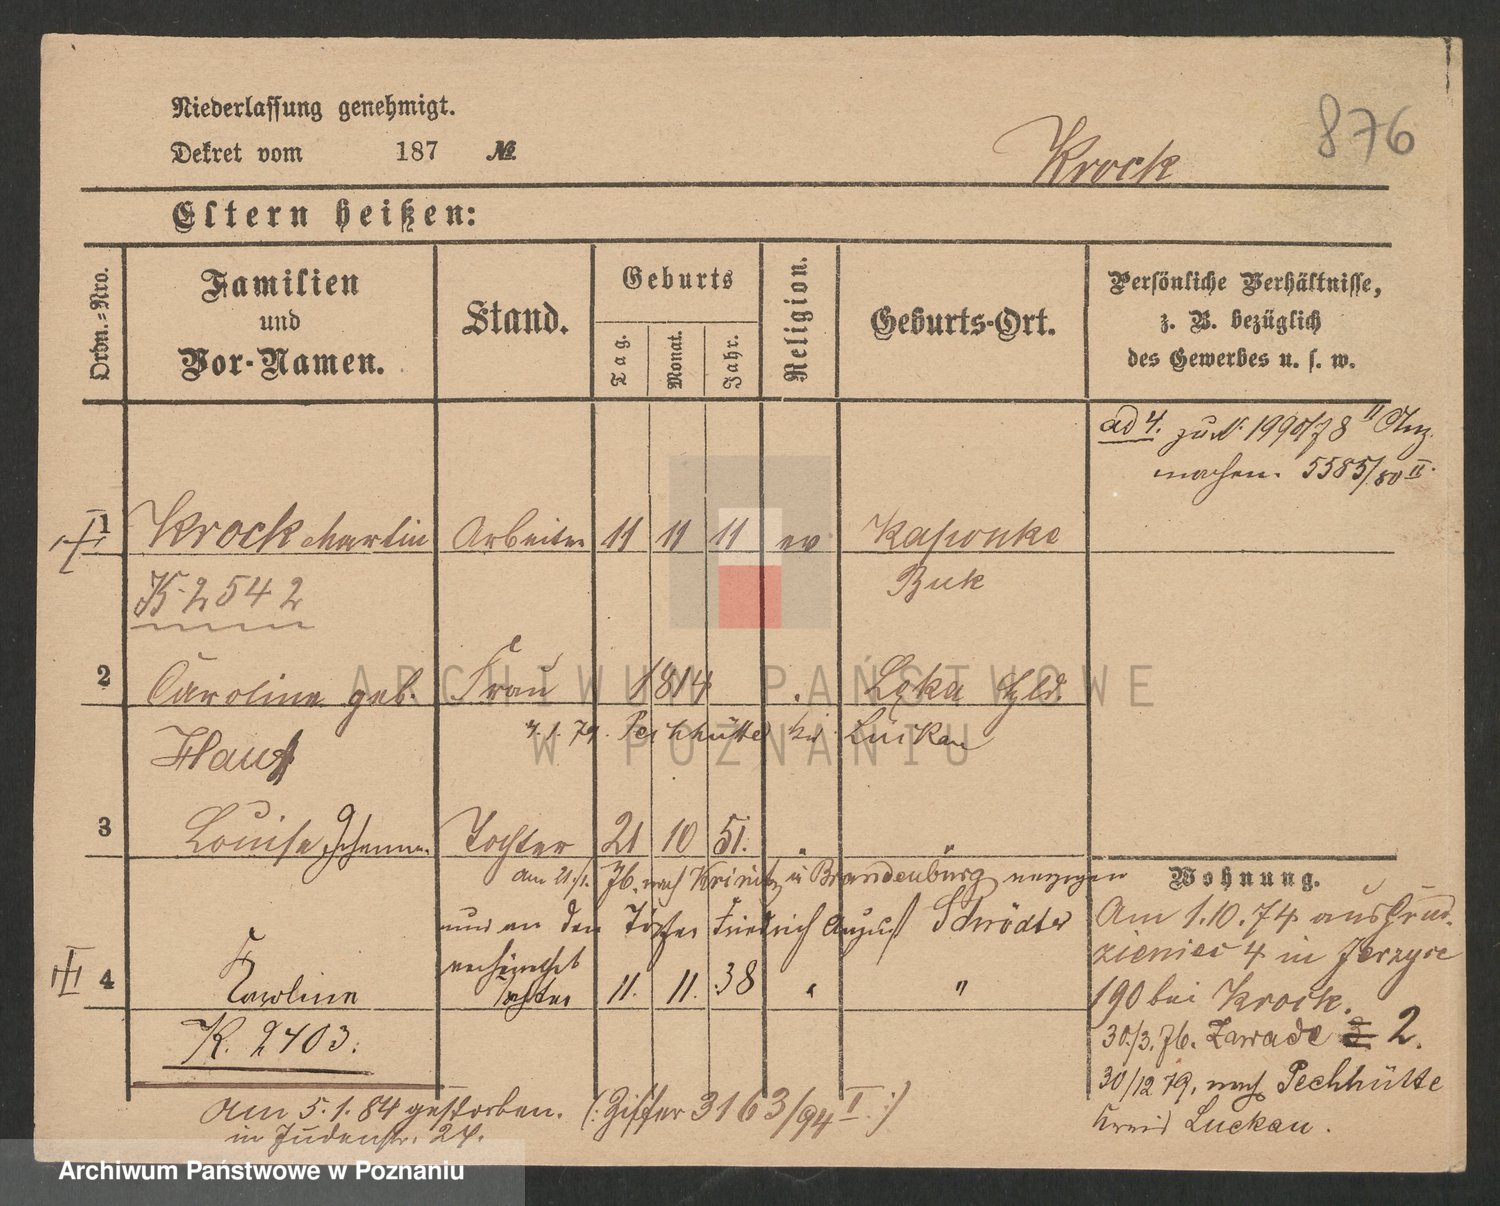 Niederlassung genehmigt.
Dekret vom 187 №
Krock
876
Eltern heißen:
Ordn.=Nro.
Familien
und
Vor-Namen.
Stand.
Geburts
Tag.
Monat.
Jahr.
Religion.
Geburts-Ort.
Persönliche Verhältnisse,
z. B. bezüglich
des Gewerbes u. s. w.
ad 4. zu N. 1990/78 II
5585/80 II.
1 Krock Martin Arbeiter 11 11 11 ev Kaponke
Buk
K 2542
2 Caroline geb. Frau 1814 Loka Hld.
4.1.79. Pechhütte bei Luckau
3 Louise Tochter 21 10 51. " "
am 21./1. 76. nach Krinitz in Brandenburg verzogen
und an den Töpfer Friedrich August Schrödter
verheirathet
4 Karoline Tochter 11. 11. 38 " "
K. 2403.
Wohnung.
Am 1.10.74 aus
4 in Jerzyce
190 bei Krock.
30./3. 76. Zawade 2.
30/12 79. nach Pechhütte
Kreis Luckau.
am 5.1.84 gestorben. (: Ziffer 3163/94 I :)
in Judenstr. 24.
ARCHIWUM PAŃSTWOWE
W POZNANIU
Archiwum Państwowe w Poznaniu